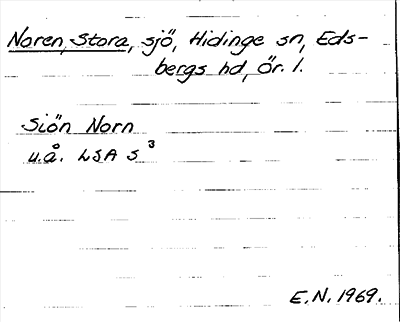 Noren, Stora, sjö, Hidinge sn, Eds-
bergs hd, Ör. l.
Siön Norn
u.å. LSA S³
E.N. 1969.